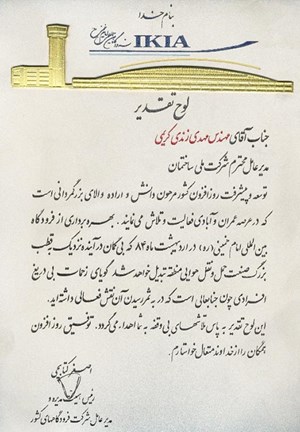 بنام خدا
فرودگاه بین المللی امام خمینی
IKIA
لوح تقدیر
جناب آقای مهندس مهدی زندی کریمی
مدیرعامل محترم شرکت ملی ساختمان
توسعه و پیشرفت روزافزون کشور مرهون دانش و اراده والای بزرگمردانی است
که در عرصه عمران و آبادی فعالیت و تلاش می نمایند . بهره برداری از فرودگاه
بین المللی امام خمینی (ره) در اردیبهشت ماه ۸۴ که بی گمان در آینده نزدیک به قطب
بزرگ صنعت حمل و نقل هوایی منطقه تبدیل خواهد شد گویای زحمات بی دریغ
افرادی چون جنابعالی است که در به ثمر رسیدن آن نقش فعالی داشته اید.
این لوح تقدیر به پاس تلاشهای بی وقفه به شما اهدا می گردد. توفیق روز افزون
همگان را از خداوند متعال خواستارم.
اصغر کتابچی
رئیس هیئت مدیره و
مدیرعامل شرکت فرودگاههای کشور